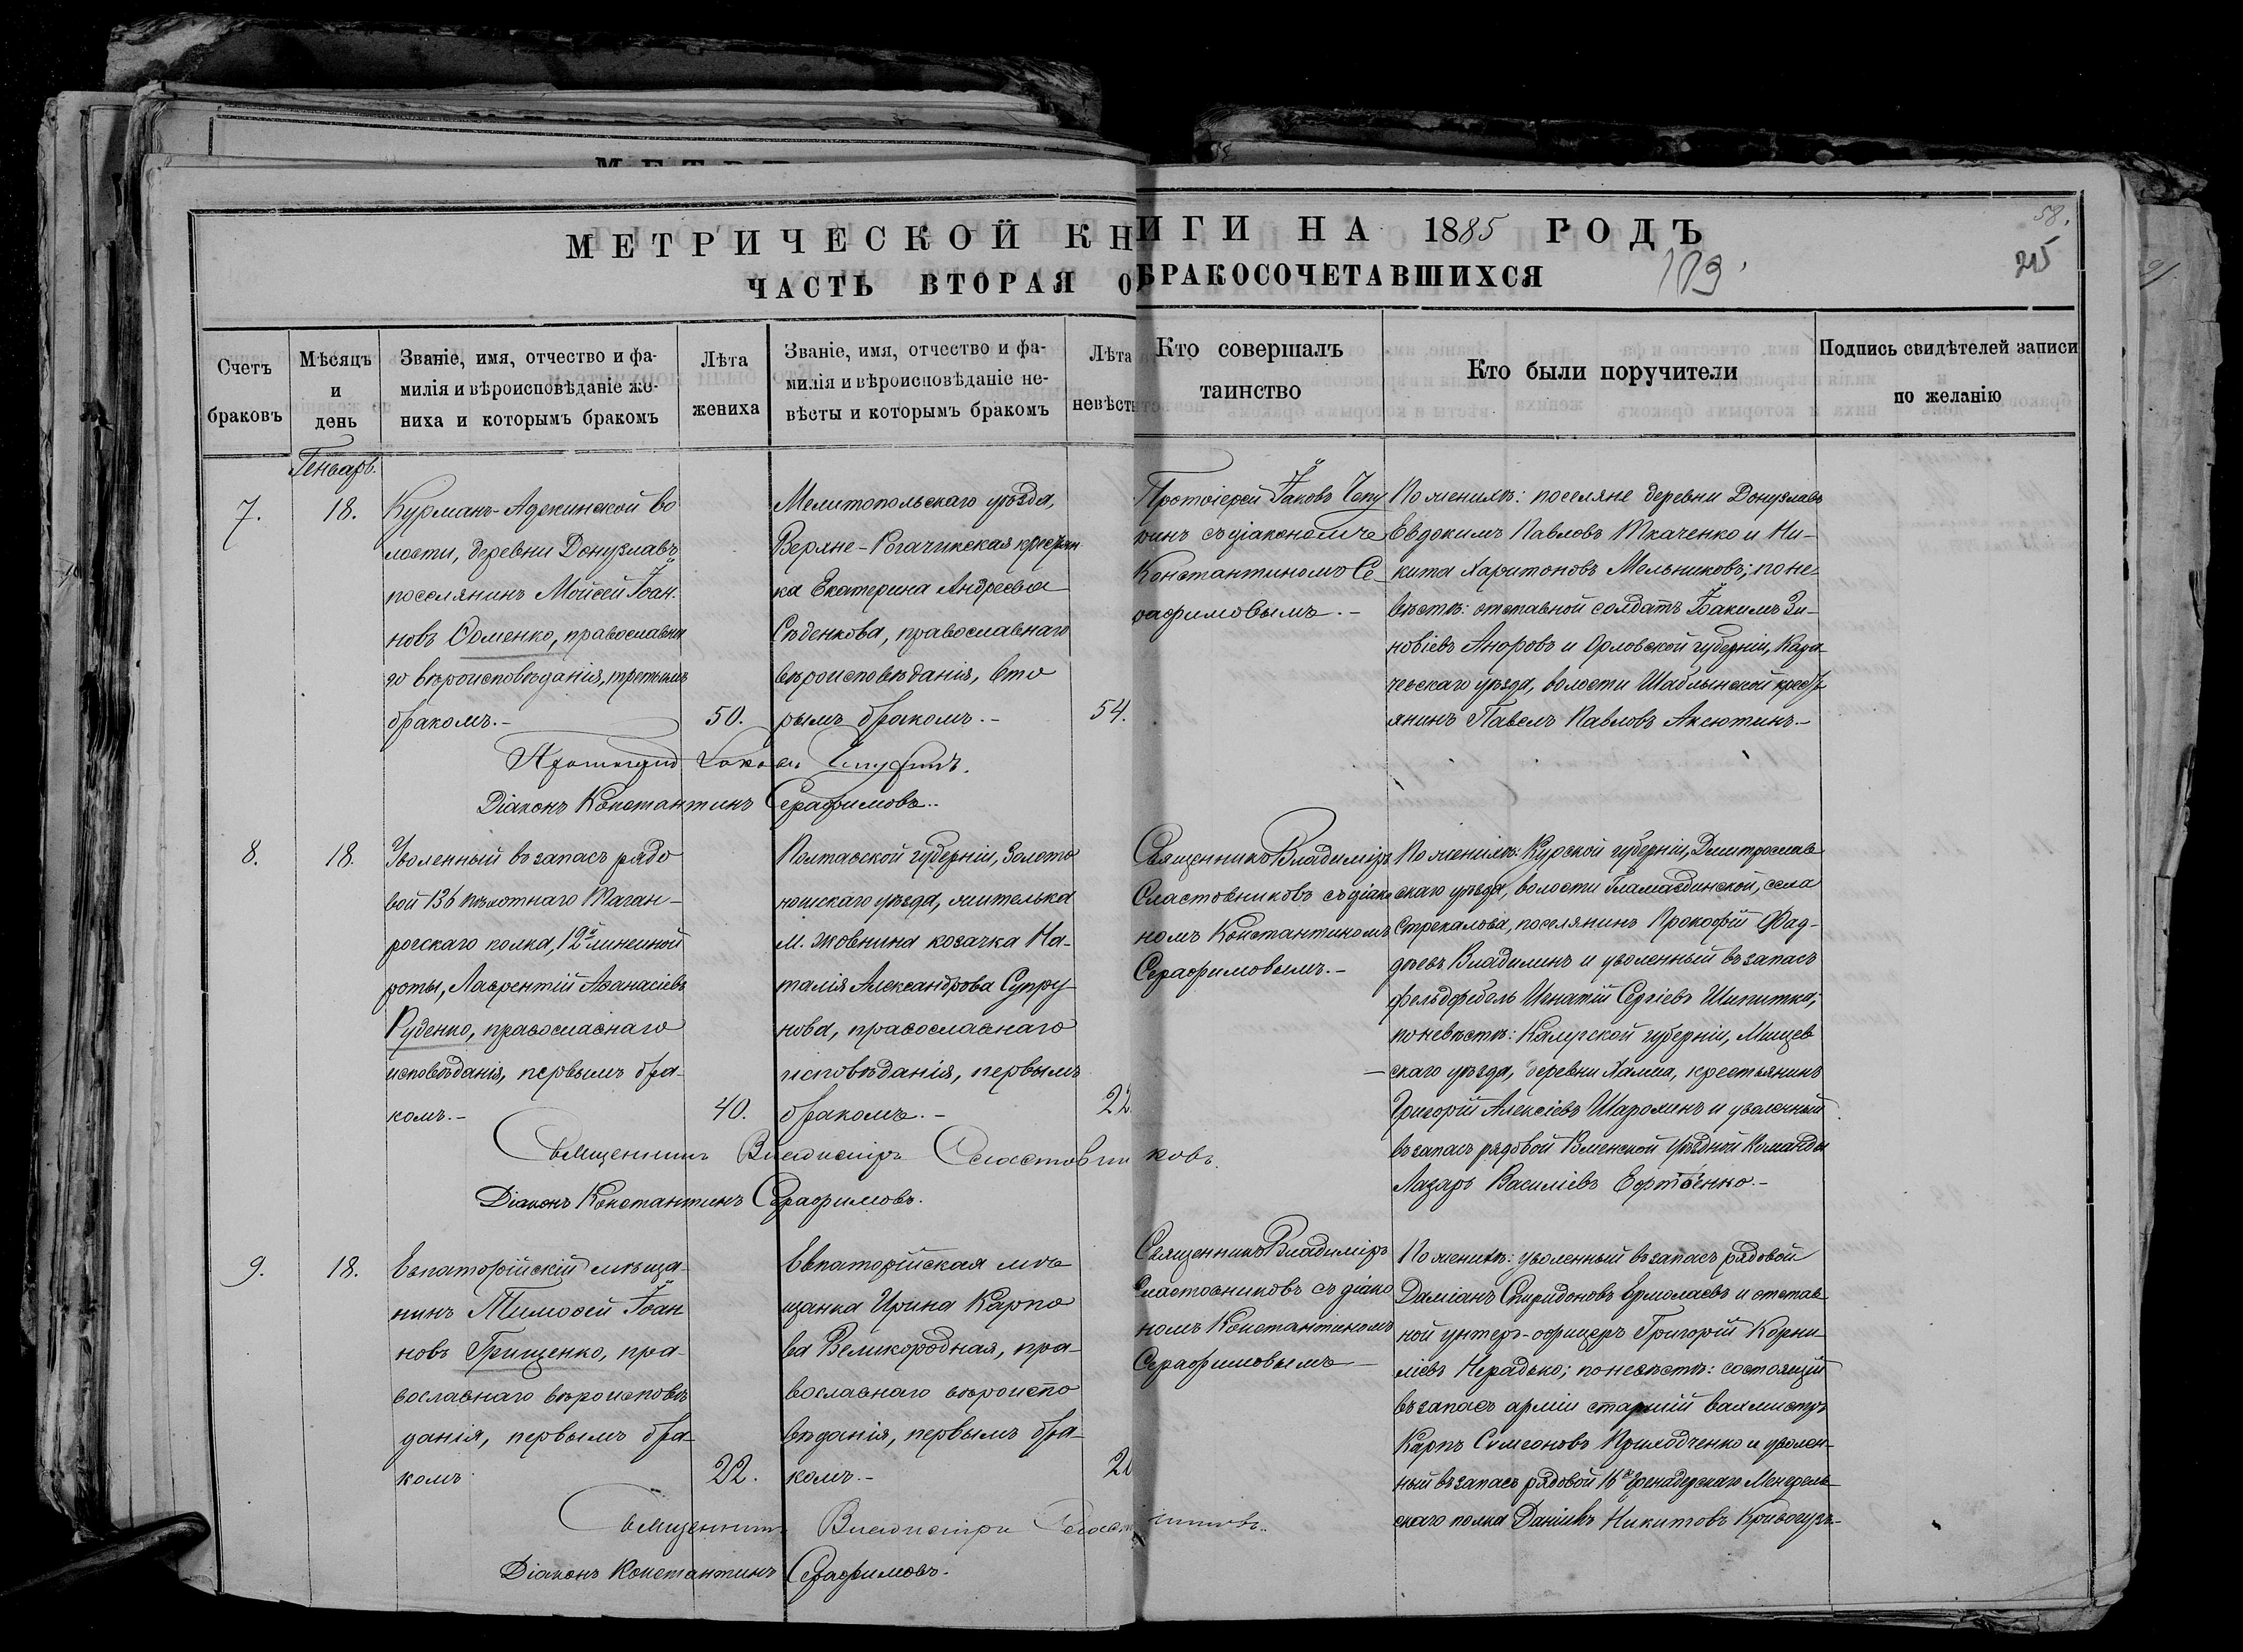 58.
215
МЕТРИЧЕСКОЙ КНИГИ НА 1885 ГОДЪ
119
ЧАСТЬ ВТОРАЯ О БРАКОСОЧЕТАВШИХСЯ
Счетъ браковъ
Мѣсяцъ и день
Званіе, имя, отчество и фа-
милія и вѣроисповѣданіе же-
ниха и которымъ бракомъ
Лѣта
жениха
Званіе, имя, отчество и фа-
милія и вѣроисповѣданіе не-
вѣсты и которымъ бракомъ
Лѣта
невѣсты
Кто совершалъ
таинство
Кто были поручители
Подпись свидѣтелей записи
по желанію
Генварь.
7.
18.
Курманъ-Аджинской во
лости, деревни Донузлавъ
поселянинъ Мойсей Іоан.
новъ Ооменко, православна
го вѣроисповѣданія, третьимъ
бракомъ.-
50.
Мелитопольскаго уѣзда,
Верхне-Рогачикская крестьян
ка Екатерина Андреева
Сѣденкова, православнаго
вѣроисповѣданія, вто
рымъ бракомъ.-
54.
Протоіерей Іаковъ Чепу
ринъ съ діакономъ
Константиномъ Се-
рафимовымъ.-
По женихѣ: поселяне деревни Донузлавъ
Евдокимъ Павловъ Ткаченко и Ни-
кита Харитоновъ Мельниковъ; по не-
вѣстѣ: отставной солдатъ Іоакимъ Зи-
новіевъ Аноровъ и Орловской губерніи, Кара-
чевскаго уѣзда, волости Шаблыкской крест
янинъ Павелъ Павловъ Аксютинъ.-
Протоіерей Іаковъ Чепуринъ.
Діаконъ Константинъ Серафимовъ.
8.
18.
Уволенный въ запасъ рядо
вой 136 пѣхотнаго Таган-
рогскаго полка, 12й линейной
роты, Лаврентій Аѳанасіевъ
Руденко, православнаго
исповѣданія, первымъ бра-
комъ.-
40.
Полтавской губерніи, Золото
ношскаго уѣзда, жителька
м. Жовнина козачка На-
талія Александрова Супру-
нова, православнаго
исповѣданія, первымъ
бракомъ.-
22
Священникъ Владиміръ
Сластовниковъ съ діако
номъ Константиномъ
Серафимовымъ.-
По женихѣ: Курской губерніи, Дмитрослав
скаго уѣзда, волости Гламаздинской, села
Стрекалова, поселянинъ Прокофій Фад-
дѣевъ Владилинъ и уволенный въ запасъ
фельдфебель Игнатій Сергіевъ Шипитка;
по невѣстѣ: Калужской губерніи, Мищев
скаго уѣзда, деревни крестьянинъ
Григорій Алексіевъ Шарохинъ и уволенный
въ запасъ рядовой уѣздной Команды
Лазарь Василіевъ
Священникъ Владиміръ Сластовниковъ.
Діаконъ Константинъ Серафимовъ.
9.
18.
Евпаторійскій мѣща-
нинъ Тимоѳей Іоан
новъ Грищенко, пра-
вославнаго вѣроисповѣ
данія, первымъ бра-
комъ
22.
Евпаторійская мѣ
щанка Ирина Карпо
ва Великородная, пра-
вославнаго вѣроиспо
вѣданія, первымъ бра-
комъ.-
Священникъ Владиміръ
Сластовниковъ съ діако
номъ Константиномъ
Серафимовымъ-
По женихѣ: уволенный въ запасъ рядовой
Даміанъ Спиридоновъ Ермолаевъ и отстав-
ной унтеръ-офицеръ Григорій Корни-
ліевъ Нерадько; по невѣстѣ: состоящій
въ запасѣ арміи старшій вахмистръ
Карпъ Симеоновъ Приходченко и уволен-
ный въ запасъ рядовой 16го гренадерскаго Менгрель-
скаго полка Даніилъ Никитовъ
Священникъ Владиміръ Сластовниковъ.
Діаконъ Константинъ Серафимовъ.